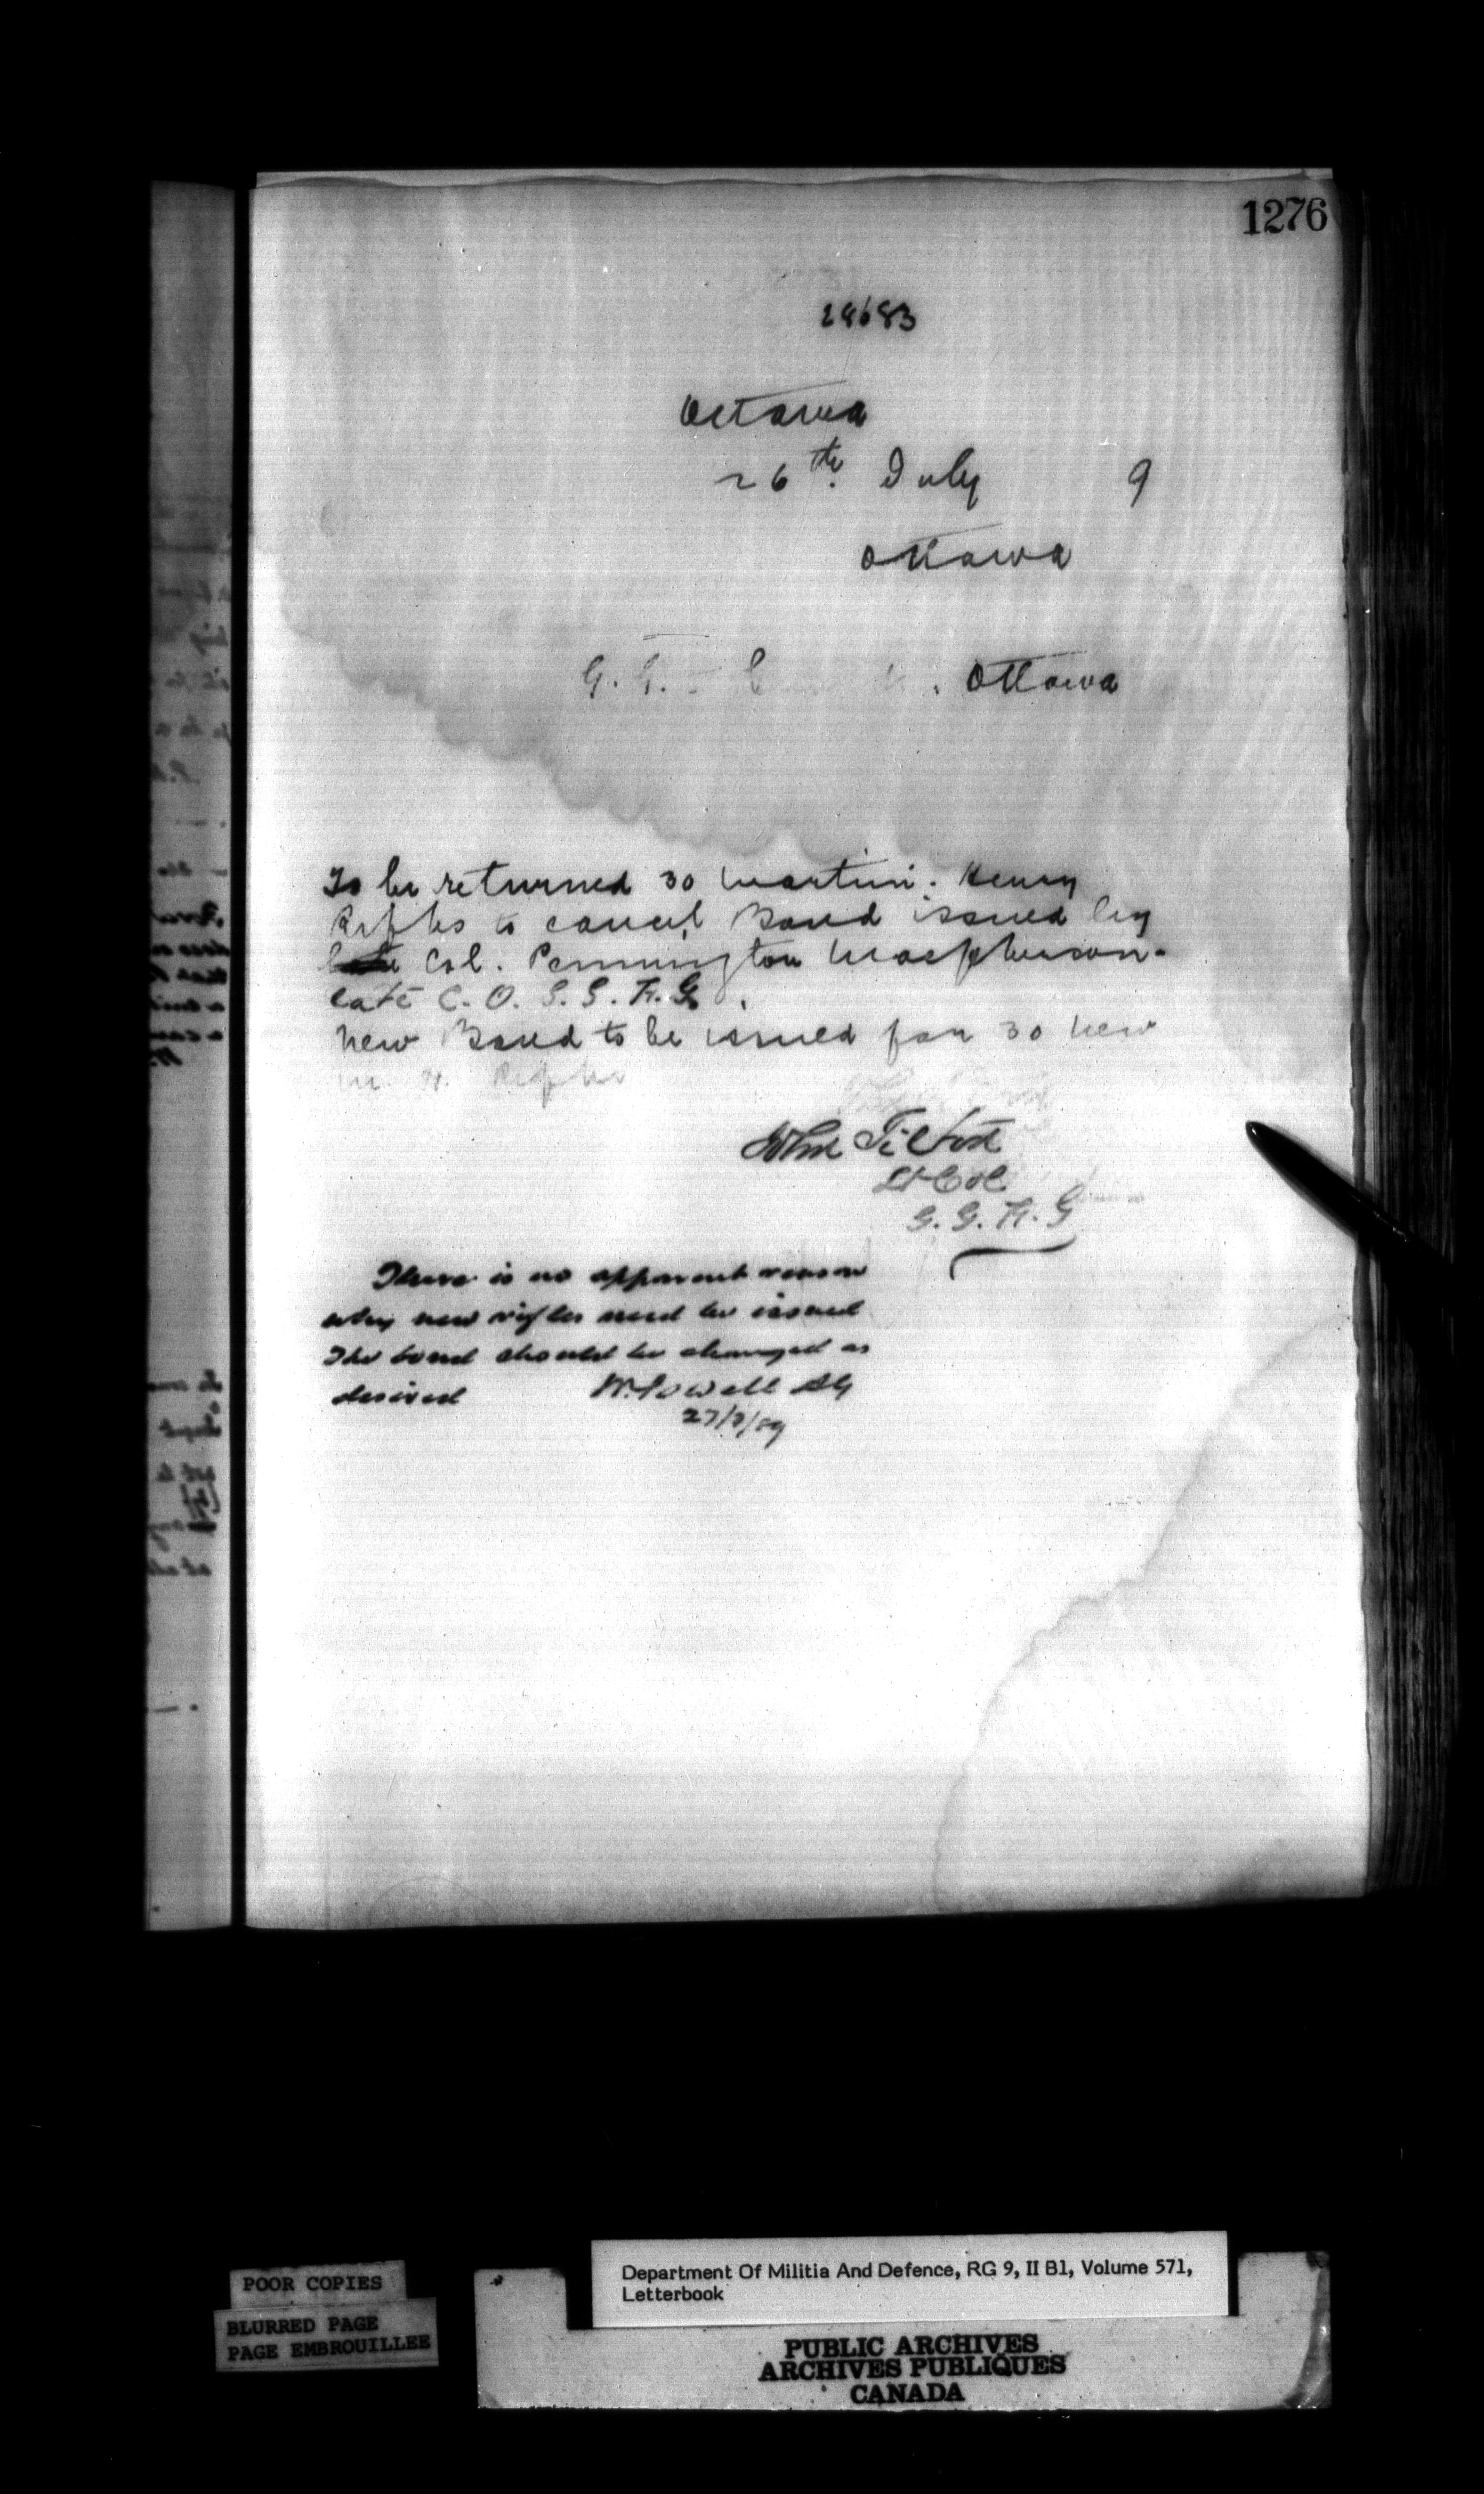 1276
28683
Ottawa
26th. July 9
Ottawa
G. G. Ottawa
To be returned 30 Martini. Henry
Rifles to cancel Bond issued by
Col. Pennington Macpherson-
late C. O. G. G. F. G.
New Bond to be issued for 30 new
M. H. Rifles
John Tilton
Lt Col
G. G. F. G
There is no apparent reason
why new rifles need be issued
The bond should be changed as
desired W. Powell AG
27/7/89
POOR COPIES
BLURRED PAGE
PAGE EMBROUILLEE
Department Of Militia And Defence, RG 9, II B1, Volume 571,
Letterbook
PUBLIC ARCHIVES
ARCHIVES PUBLIQUES
CANADA